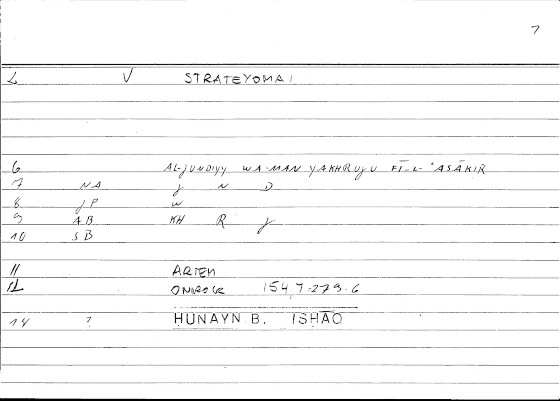 7
L V STRATEYOMAI
6 AL-JUNDIYY WA-MAN YAKHRUJU FĪ-L-ʿASĀKIR
7 NA J N D
8 JP W
9 AB KH R J
10 SB
11 ARTEM
12 ONIROCR 154,7-279.6
14 ? ḤUNAYN B. ISḤĀQ